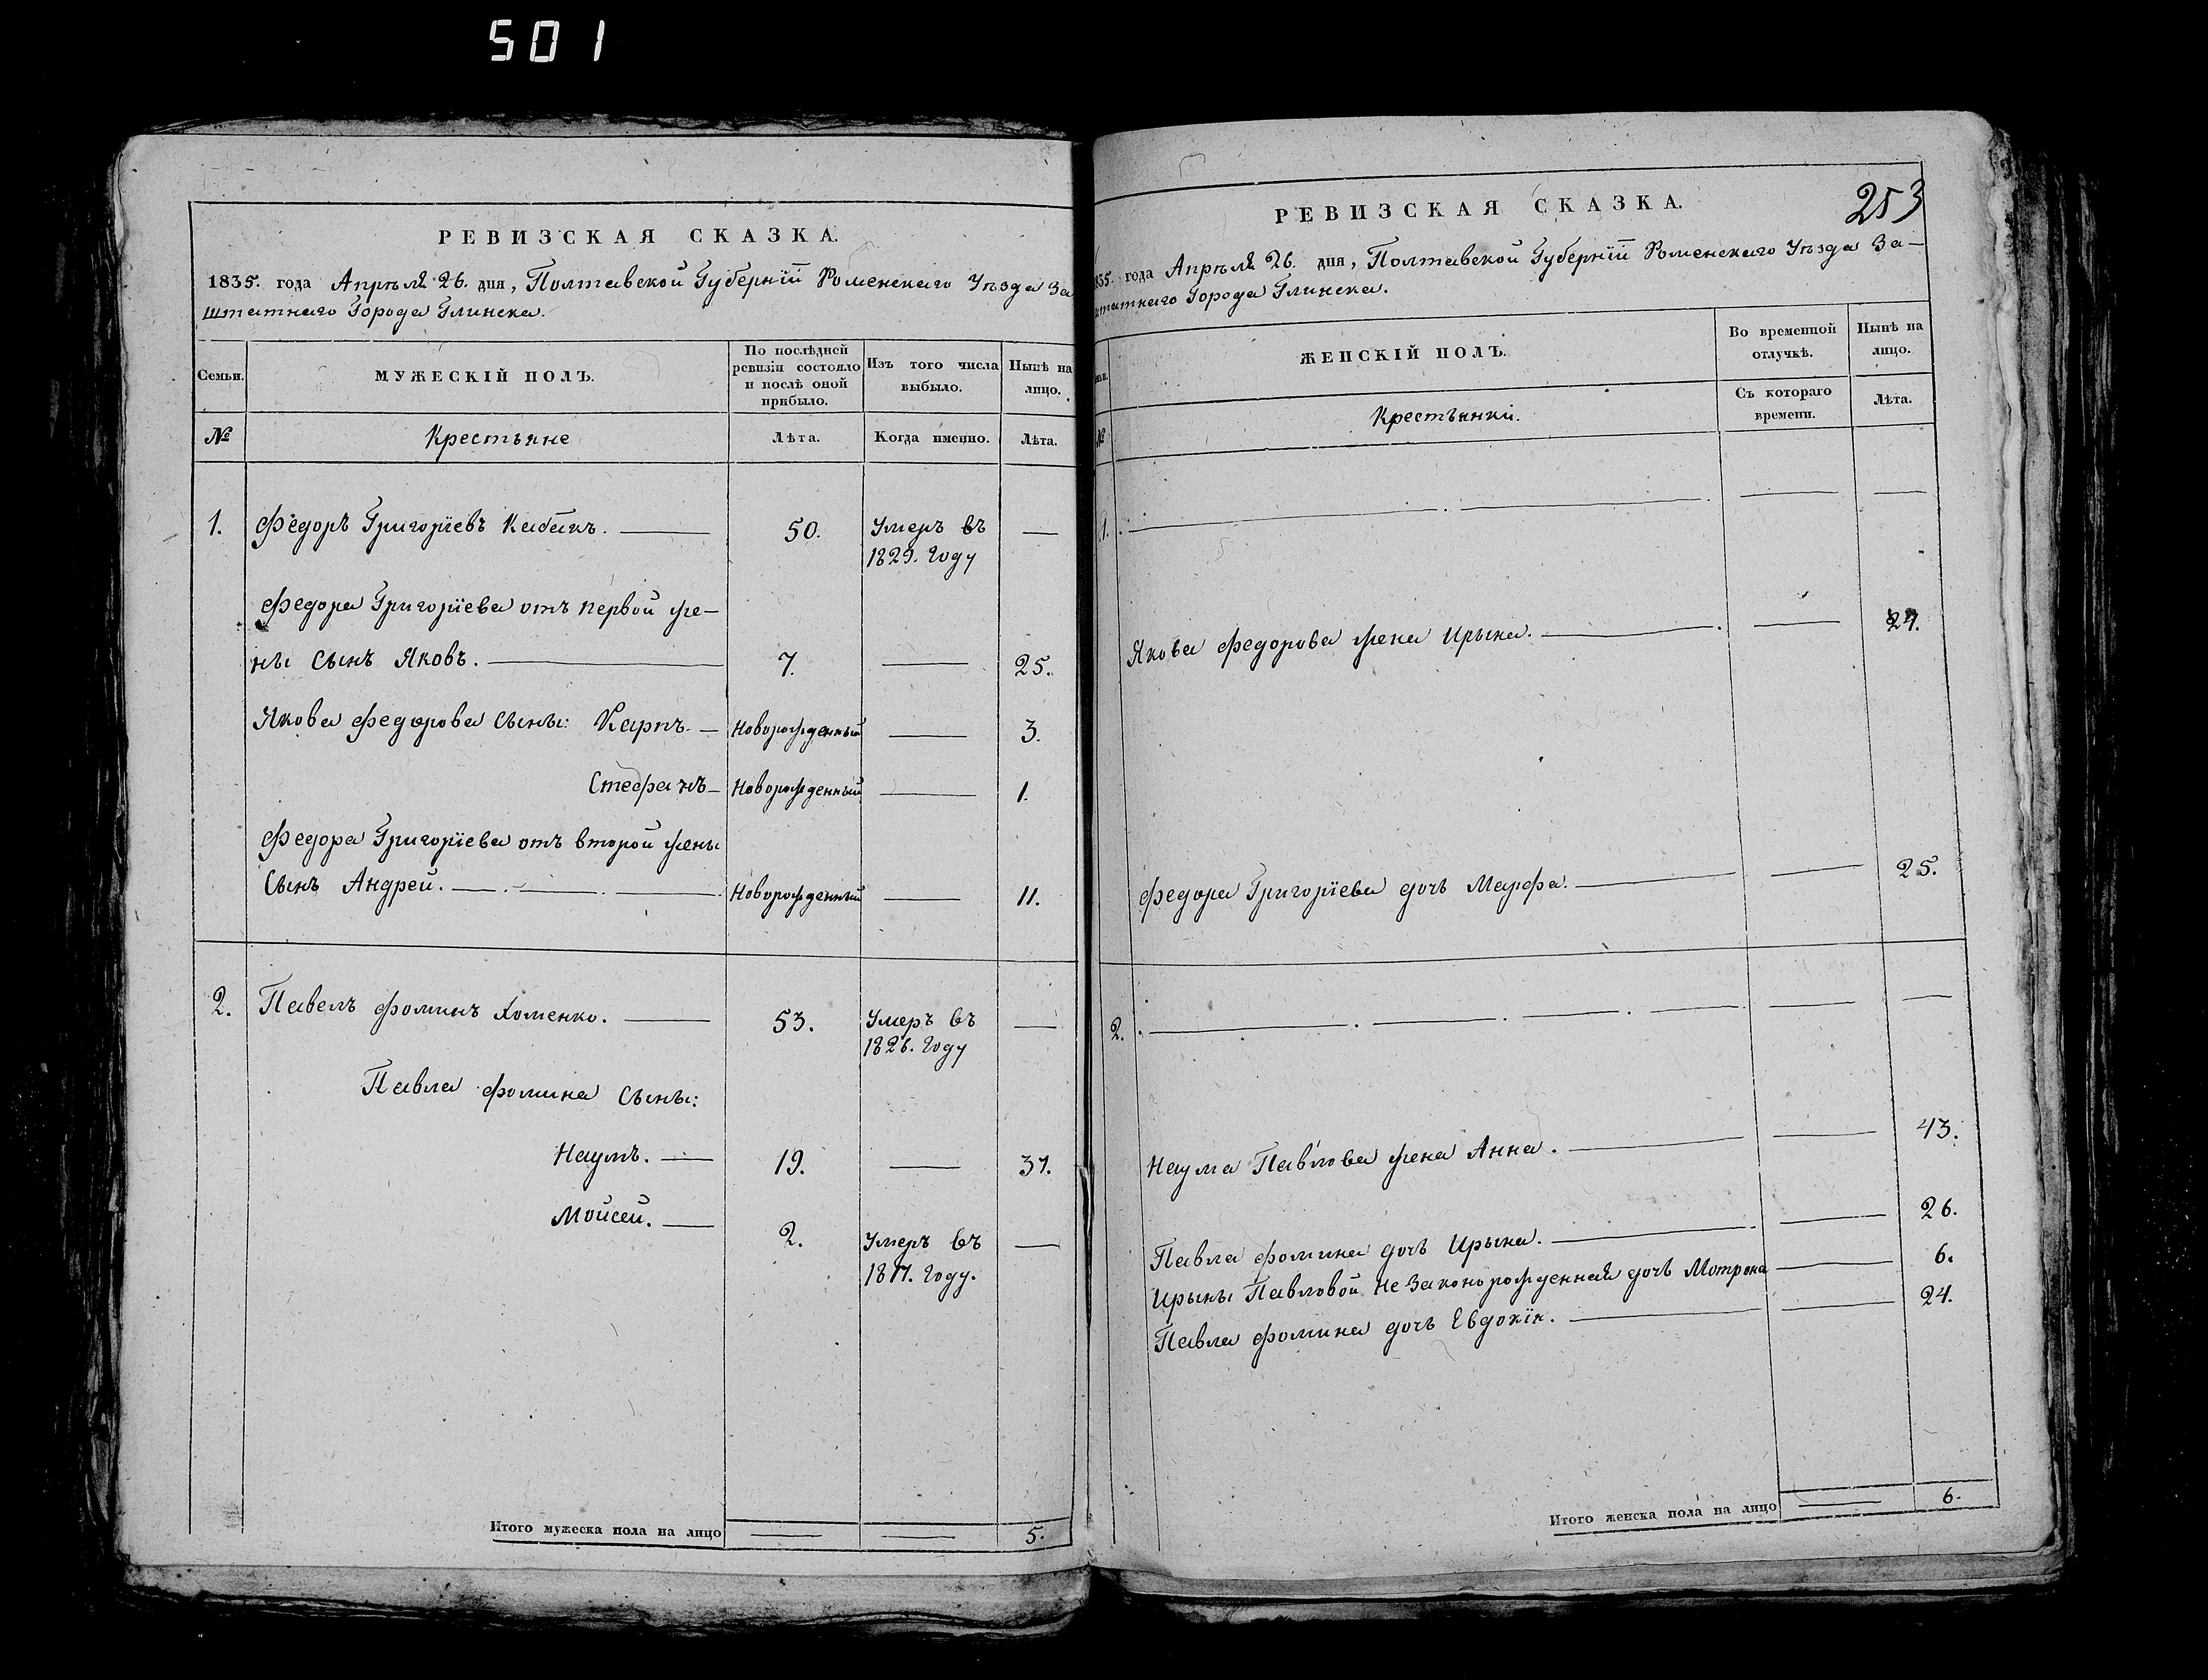 501
РЕВИЗСКАЯ СКАЗКА.
1835. года Апрѣля 26. дня, Полтавской Губерніи Роменскаго Уѣзда За
штатнаго Города Глинска.
Семьи.
МУЖЕСКІЙ ПОЛЪ.
По послѣдней ревизіи состояло и послѣ оной прибыло.
Изъ того числа выбыло.
Нынѣ на лицо.
№
Крестьяне
Лѣта.
Когда именно.
Лѣта.
1. Федоръ Григоріевъ Кабакъ. — 50. Умеръ въ —
1829. Году
Федора Григоріева отъ первой же-
ны Сынъ Яковъ. — 7. — 25.
Якова Федорова Сыны: Карпъ. — Новорожденный — 3.
Стефанъ — Новорожденный — 1.
Федора Григоріева отъ второй жены
Сынъ Андрей. — Новорожденный — 11.
2. Павелъ Фоминъ Хоменко. — 53. Умеръ въ —
1826. Году
Павла Фомина Сыны:
Наумъ. — 19. — 37.
Мойсей. — 2. Умеръ въ —
Году.
Итого мужеска пола на лицо — — 5.
253
РЕВИЗСКАЯ СКАЗКА.
1835. года Апрѣля 26. дня, Полтавской Губерніи Роменскаго Уѣзда За-
штатнаго Города Глинска.
ЖЕНСКІЙ ПОЛЪ.
Во временной отлучкѣ.
Нынѣ на лицо.
№
Крестьянки.
Съ котораго времени.
Лѣта.
1. — — —
Якова Федорова жена Ирына. — —
Федора Григоріева дочь Марфа. — — 25.
2. — — —
Наума Павлова жена Анна. — — 43.
Павла Фомина дочь Ирына. — — 26.
Ирыны Павловой не Законорожденная дочь Мотрона — 6.
Павла Фомина дочь Евдокія. — — 24.
Итого женска пола на лицо — 6.